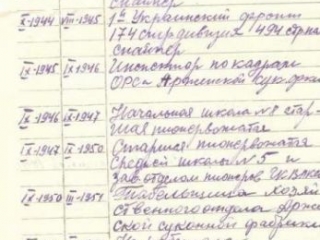 снайпер
IX-1944 VIII-1945 1й Украинский фронт
174 гвардейский 494 стрел
снайпер
IX-1945 IX-1946 Инспектор по кадрам
IX-1946 IX-1947 Начальная школа №8 стар-
шая пионервожатая
IX-1947 IX-1950 Старшая пионервожатая
средней школы №5 и
зав отделом пионеров
IX-1950 III-1951 Табельщица хозяй-
ственного отдела
ской суконной фабрики